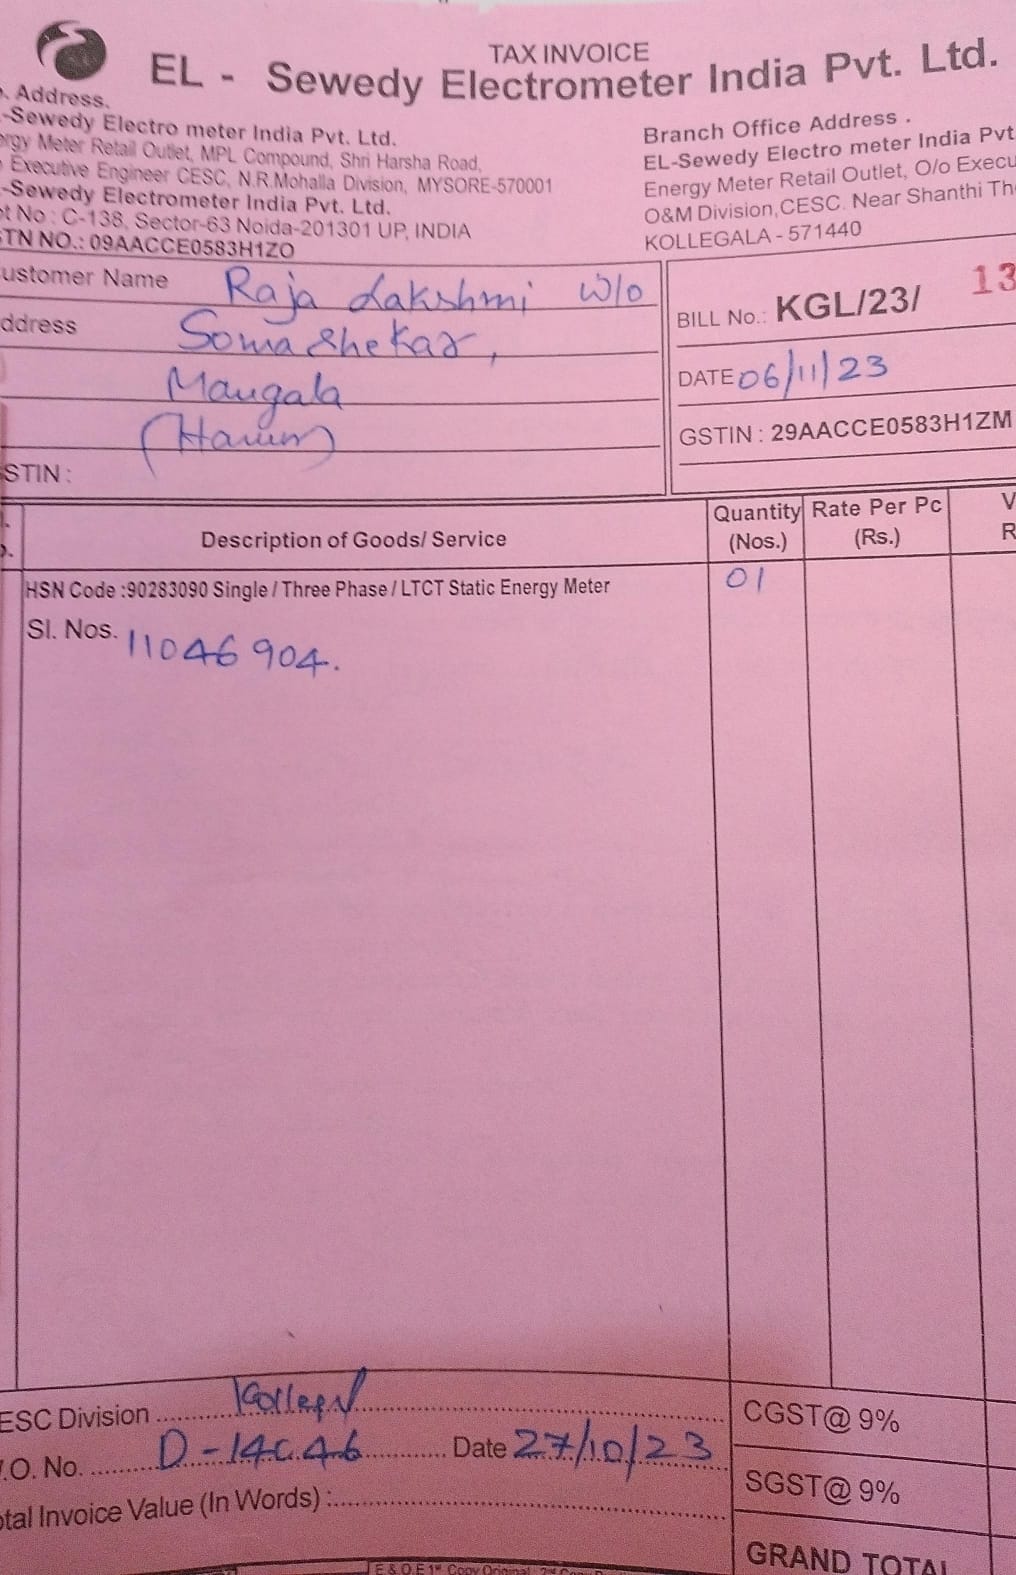 TAX INVOICE
EL - Sewedy Electrometer India Pvt. Ltd.
. Address.
-Sewedy Electro meter India Pvt. Ltd.
ergy Meter Retail Outlet, MPL Compound, Shri Harsha Road,
Executive Engineer CESC, N.R.Mohalla Division, MYSORE-570001
-Sewedy Electrometer India Pvt. Ltd.
ot No : C-138, Sector-63 Noida-201301 UP, INDIA
STN NO.: 09AACCE0583H1ZO
Branch Office Address .
EL-Sewedy Electro meter India Pvt
Energy Meter Retail Outlet, O/o Execu
O&M Division,CESC. Near Shanthi Th
KOLLEGALA - 571440
ustomer Name Raja Lakshmi W/o
ddress Soma Shekar,
Mangala
STIN :
BILL No.: KGL/23/ 13
DATE 06/11/23
GSTIN : 29AACCE0583H1ZM
Description of Goods/ Service Quantity (Nos.) Rate Per Pc (Rs.) V R
HSN Code :90283090 Single / Three Phase / LTCT Static Energy Meter 01
Sl. Nos. 11046904.
ESC Division
.O. No. Date 27/10/23
otal Invoice Value (In Words) :
CGST@ 9%
SGST@ 9%
GRAND TOTAL
E & O.E 1st Copy Original